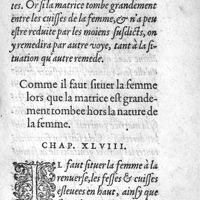 tes. Or si la matrice tombe grandement
entre les cuisses de la femme, & n'a peu
estre reduite par les moiens susdicts, on
y remedira par autre voye, tant à la si-
tuation qu'autre remede.
Comme il faut situer la femme
lors que la matrice est grande-
ment tombee hors la nature de
la femme.
CHAP. XLVIII.
IL faut situer la femme à la
renuerse, les fesses & cuisses
esleuees en haut, ainsy que